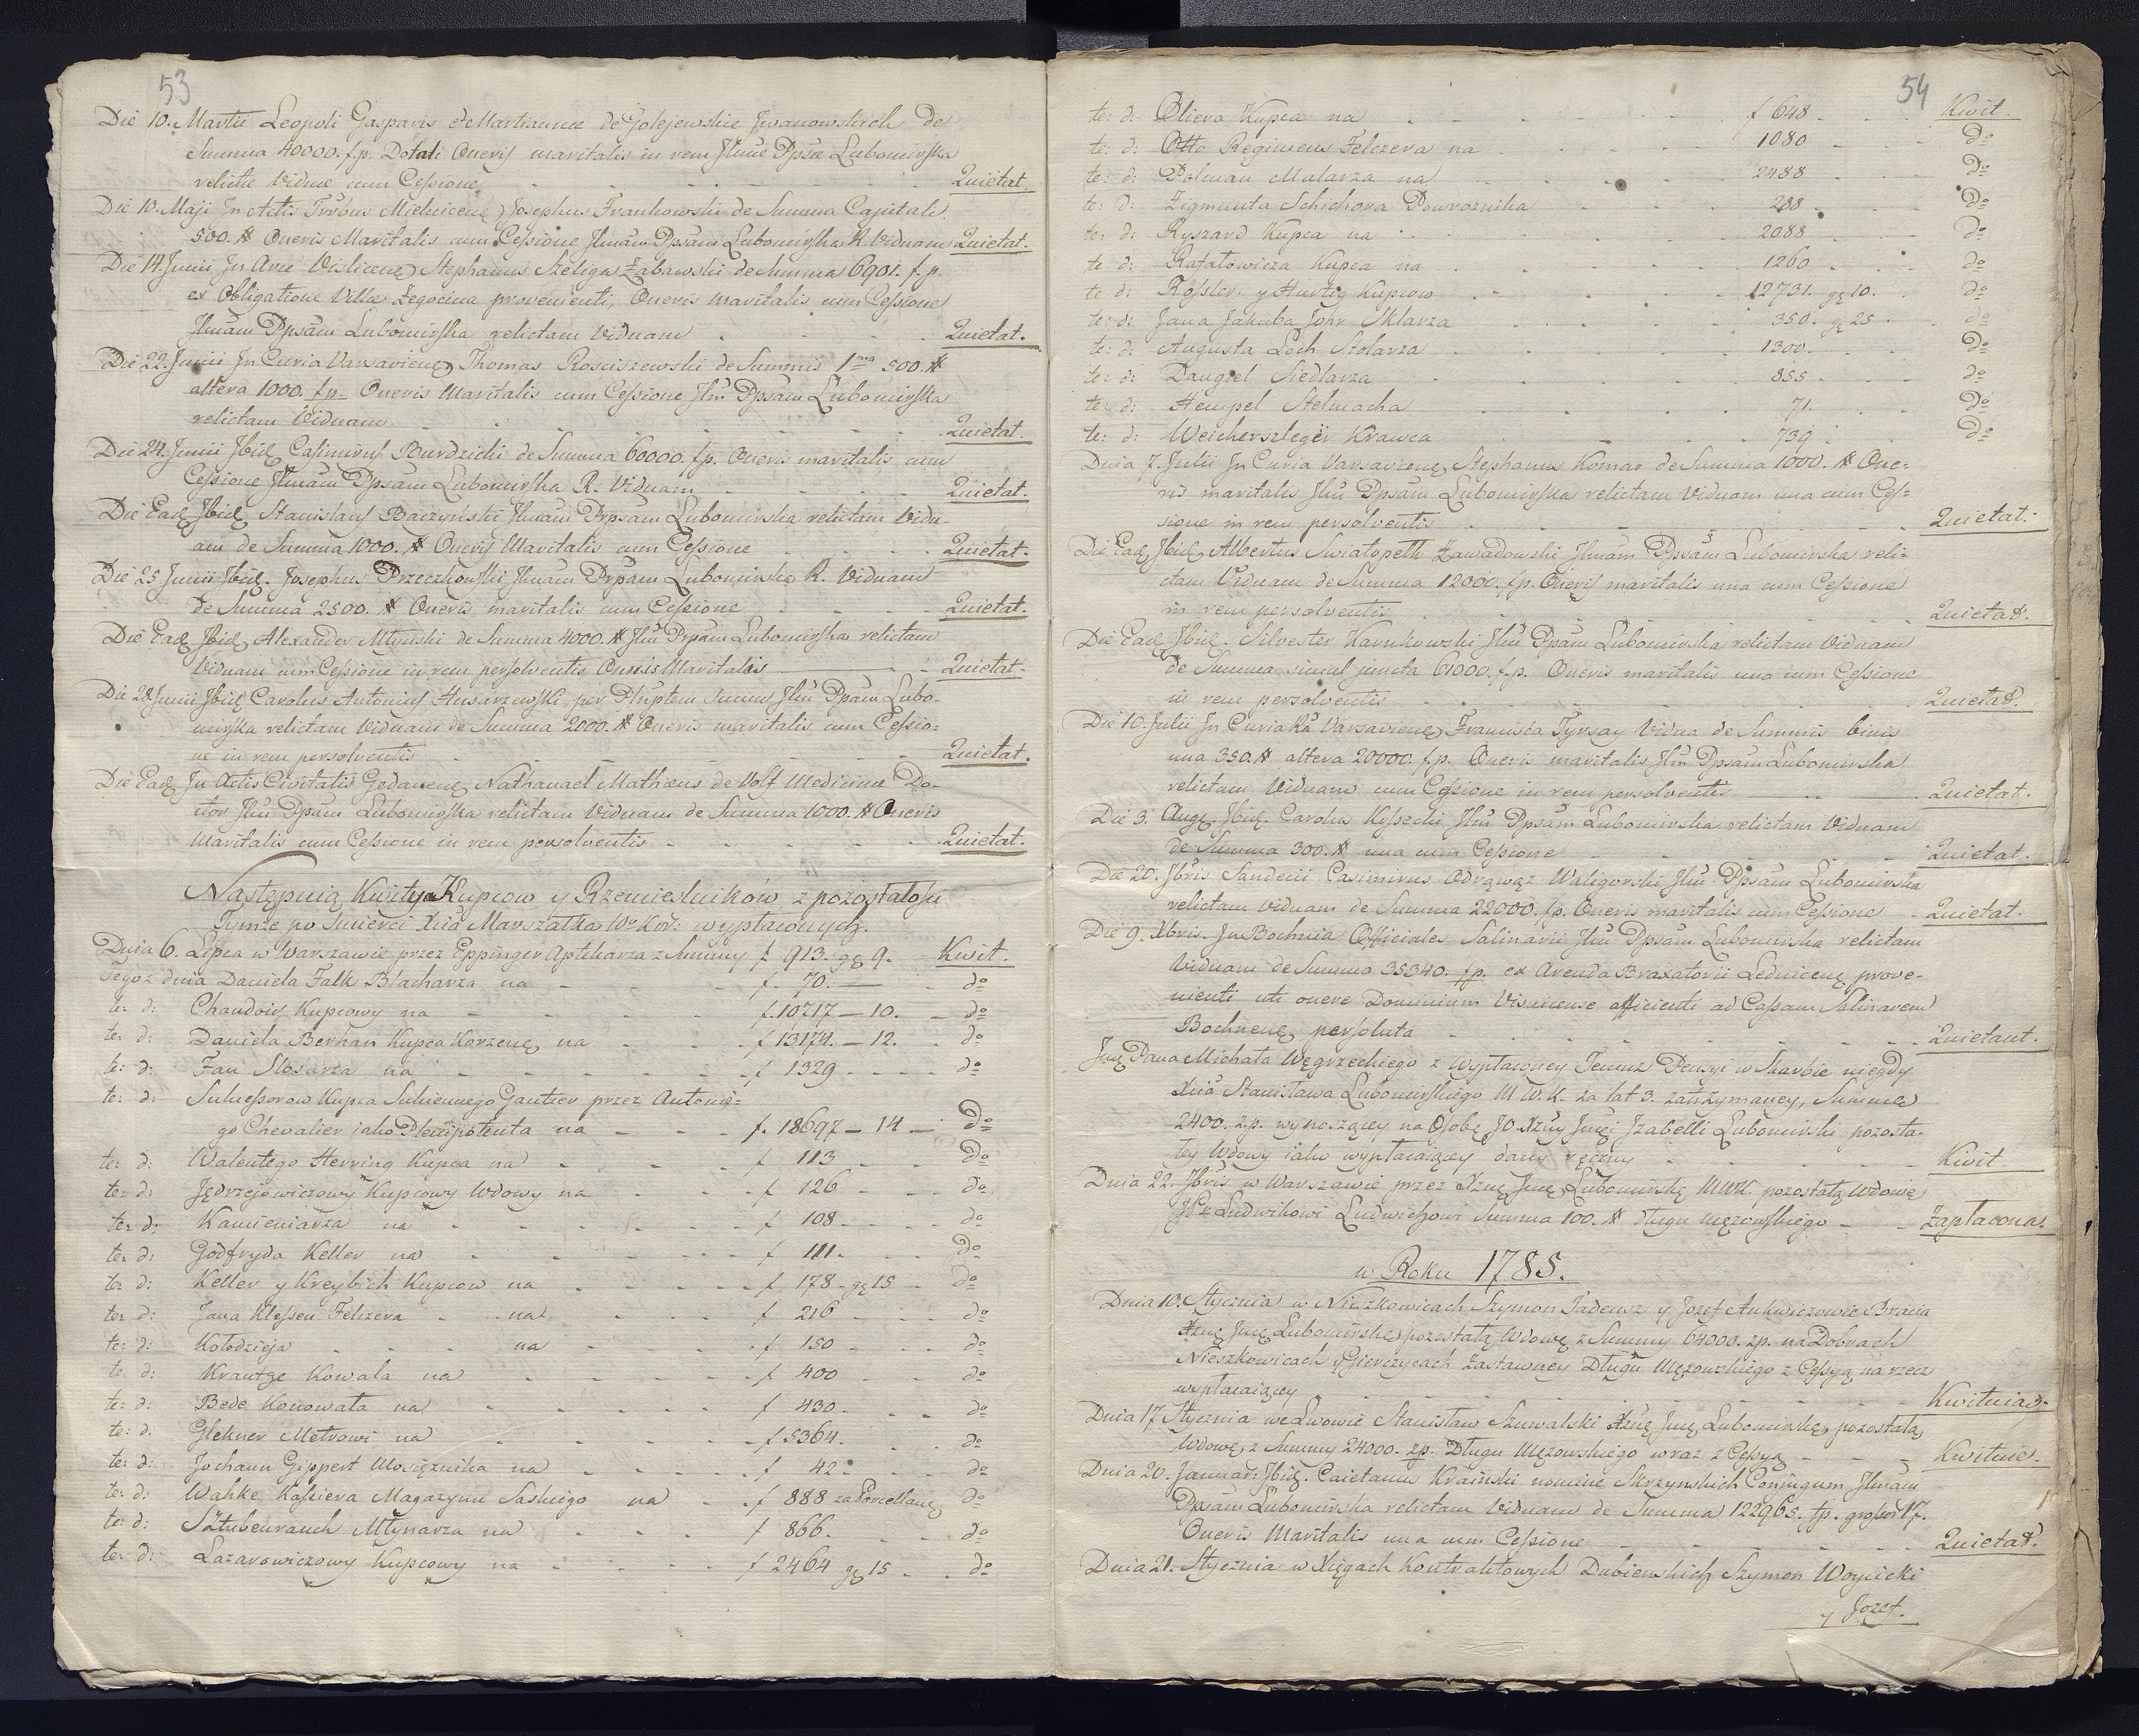 53
Die 10. Martii Leopoli Gasparis et Mariannae de Golejewskie Jwanowskich de
Summa 40000. f.p. Dotali Oneris maritalis in rem Jllmae Ppsae Lubomirska
relictae Viduae cum Cessione Quietat.
Die 10. Maji Jn Actis Josephus Frankowski de Summa Capitali
500. # Oneris Maritalis cum Cessione Jllmam Ppsam Lubomirska R. Viduam Quietat.
Die 14. Junii Jn Arce Vislicene Stephanus Szeliga Żabawski de Summa 6901. f.p.
ex Obligatione Villae Żegocina provenienti, Oneris maritalis cum Cessione
Jllmam Ppsam Lubomirska relictam Viduam Quietat.
Die 22. Junii Jn Curia Varsaviene Thomas Rosciszewski de Summis 1ma 500. #
altera 1000. f.p. Oneris Maritalis cum Cessione Jllm Ppsam Lubomirska
relictam Viduam Quietat.
Die 24. Junii Jbid. Casimirus Burdzicki de Summa 60000. f.p. Oneris maritalis cum
Cessione Jllmam Ppsam Lubomirska R. Viduam Quietat.
Die Ead. Jbid. Stanislaus Baczyński Jllmam Prpsam Lubomirska relictam Vidu-
am de Summa 1000. # Oneris Maritalis cum Cessione Quietat.
Die 25 Junii Jbid. Josephus Przeczkowski Jllmam Prpam Lubomirska R. Viduam
de Summa 2500. # Oneris maritalis cum Cessione Quietat.
Die Ead. Jbid. Alexander Młynski de Summa 4000. # Jllm Prpam Lubomirska relictam
Viduam cum Cessione in rem persolventis Oneris Maritalis Quietat.
Die 28. Junii Jbid. Carolus Antonius Husarzewski, per suum Jllm Ppam Lubo-
mirska relictam Viduam de Summa 2000. # Oneris maritalis cum Cessio-
ne in rem persolventis Quietat.
Die Ead. Jn Actis Civitatis Gedanene Nathanael Mathaeus de Wolf Medicinae Do-
ctor Jllm Ppam Lubomirska relictam Viduam de Summa 1000. # Oneris
Maritalis cum Cessione in rem persolventis Quietat.
Następuią Kwitya Kupcow y Rzemieslników z pozostałości
Tymże po Smierci Xcia Marszałka Wo Kor: wypłaconych.
Dnia 6. Lipca w Warszawie przez Eppinger Aptekarza z Summy f 913. gę 9. Kwit.
Tegoz dnia Daniela Falk Blacharza na f. 70. do
te: d: Chandoir Kupcowy na f. 10717 — 10. do
te: d: Daniela Berhan Kupca Korzene na f 13174. — 12. do
te: d: Fan Slosarza na f 1329 do
te: d: Sukcessorow Kupca Sukiennego Gautier przez Antonie-
go Chevalier iako Plenipotenta na f. 18697 — 14 — do
te: d: Walentego Herring Kupca na f 113 do
te: d: Jędrzejowiczowy Kupcowy Wdowy na f 126 do
te: d: Kamieniarza na f 108 do
te: d: Godfryda Keller na f 111. do
te: d: Keller y Kreybich Kupcow na f 178 - gę 15 do
te: d: Jana Klessen Felczera na f 216 do
te: d: Kołodzieja na f 150 do
te: d: Krautze Kowala na f 400 do
te: d: Bede Konowała na f 430 do
te: d: Glekner Metrowi na f 5364. do
te: d: Johann Gippert Mosiężnika na f 42. do
te: d: Wahke Kassiera Magazynu Saskiego na f 888 za Porcellanę do
te: d: Sztubenrauch Młynarza na f 866. do
te: d: Lazarowiczowy Kupcowy na f 2464 gę 15 do
54
te: d: Oliera Kupca na f 648 Kwit.
te: d: Otto Regimens Felczera na 1080 do
te: d: Polman Malarza na 2488 do
te: d: Zigmunta Schichora Powroznika 288 do
te: d: Ryszard Kupca na 2088 do
te d: Rafałowicza Kupca na 1260 do
te d: Rossler y Hurtig Kupcow 12731. gę 10. do
te: d: Jana Jakuba John Sklarza 350. gę 25 do
te: d: Augusta Loch Stolarza 1300. do
te: d: Daugiel Siedlarza 855 do
te: d: Hempel Stelmacha 71. do
te: d: Weicherszlegier Krawca 739 do
Dnia 7. Julii Jn Curia Varsaviene, Stephanus Komar de Summa 1000. # One-
ris maritalis Jllm Ppsam Lubomirska relictam Viduam una cum Ces-
sione in rem persolventis Quietat.
Die Ead. Jbid. Albertus Swiatopełk Zawadowski Jllmam Ppsam Lubomirska reli-
ctam Viduam de Summa 12000. f.p. Oneris maritalis una cum Cessione
in rem persolventis Quietat.
Die Ead. Jbid. Silvester Karnkowski Jllm Ppam Lubomirska relictam Viduam
de Summa simul juncta 61000. f.p. Oneris maritalis una cum Cessione
in rem persolventis Quietat.
Die 10. Julii Jn Curia Varsaviene, Francisca Tyrsay Vidua de Summis binis
una 350. # altera 20000. f.p. Oneris maritalis Jllm Ppsam Lubomirska
relictam Viduam cum Cessione in rem persolventis Quietat.
Die 3. Aug. Jbid. Carolus Kossecki Jllm Ppsam Lubomirska relictam Viduam
de Summa 300. # una cum Cessione Quietat.
Die 20. Jbris Sandecii Casimirus Odrąwąz Waligorski Jllm Ppsam Lubomirska
relictam Viduam de Summa 22000. f.p. Oneris maritalis cum Cessione Quietat.
Die 9. Xbris. Jn Bochnia Officiales Salinarii Jllm Ppsam Lubomirska relictam
Viduam de Summa 35340. f.p. ex Arenda Braxatorii Lednicene prove-
nienti uti onere Dominium Visnicense afficienti ad Cassam Salinarem
Bochnene persoluta Quietant.
Jmę Pana Michała Węgrzeckiego z Wypłaconey Jemuz Pensyi w Skarbie niegdy
Xcia Stanisława Lubomirskiego M. W. K. za lat 3. zatrzymaney, Summę
2400. z.p. wynoszącey na Osobę JO Xzny Jmci Jzabelli Lubomirski pozosta-
łey Wdowy iako wypłacaiącey dany ręczny Kwit
Dnia 22. Jbris w Warszawie przez Xznę Jmę Lubomirskę MWK. pozostałą Wdowę
JPę Ludwikowi Ludwichowi Summa 100. # długu mężowskiego Zapłacona.
w Roku 1785.
Dnia 10. Stycznia w Nieszkowicach Szymon Tadeusz y Jozef Ankwiczowie Bracia
Xznę Jmę Lubomirskę pozostałą Wdowę z Summy 64000. zp. na Dobrach
Nieszkowicach y Gierczycach Zastawney Długu Mężowskiego z Cessyą na rzecz
wypłacaiącey Kwituią.
Dnia 17 Stycznia we Lwowie Stanisław Skuwalski Xznę Jmę Lubomirskę pozostałą
Wdowę z Summy 24000. zp. Długu Mężowskiego wraz z Cessyą Kwituie.
Dnia 20. Januar: Jbid. Caietanus Krainski nomine Skrzynskich Conjugum Jllmam
Ppsam Lubomirska relictam Viduam de Summa 122965. f.p. grossor 17.
Oneris Maritalis una cum Cessione Quietat.
Dnia 21. Stycznia w Xięgach Kontraktowych Dubienskich Szymon Woycicki
y Jozef.